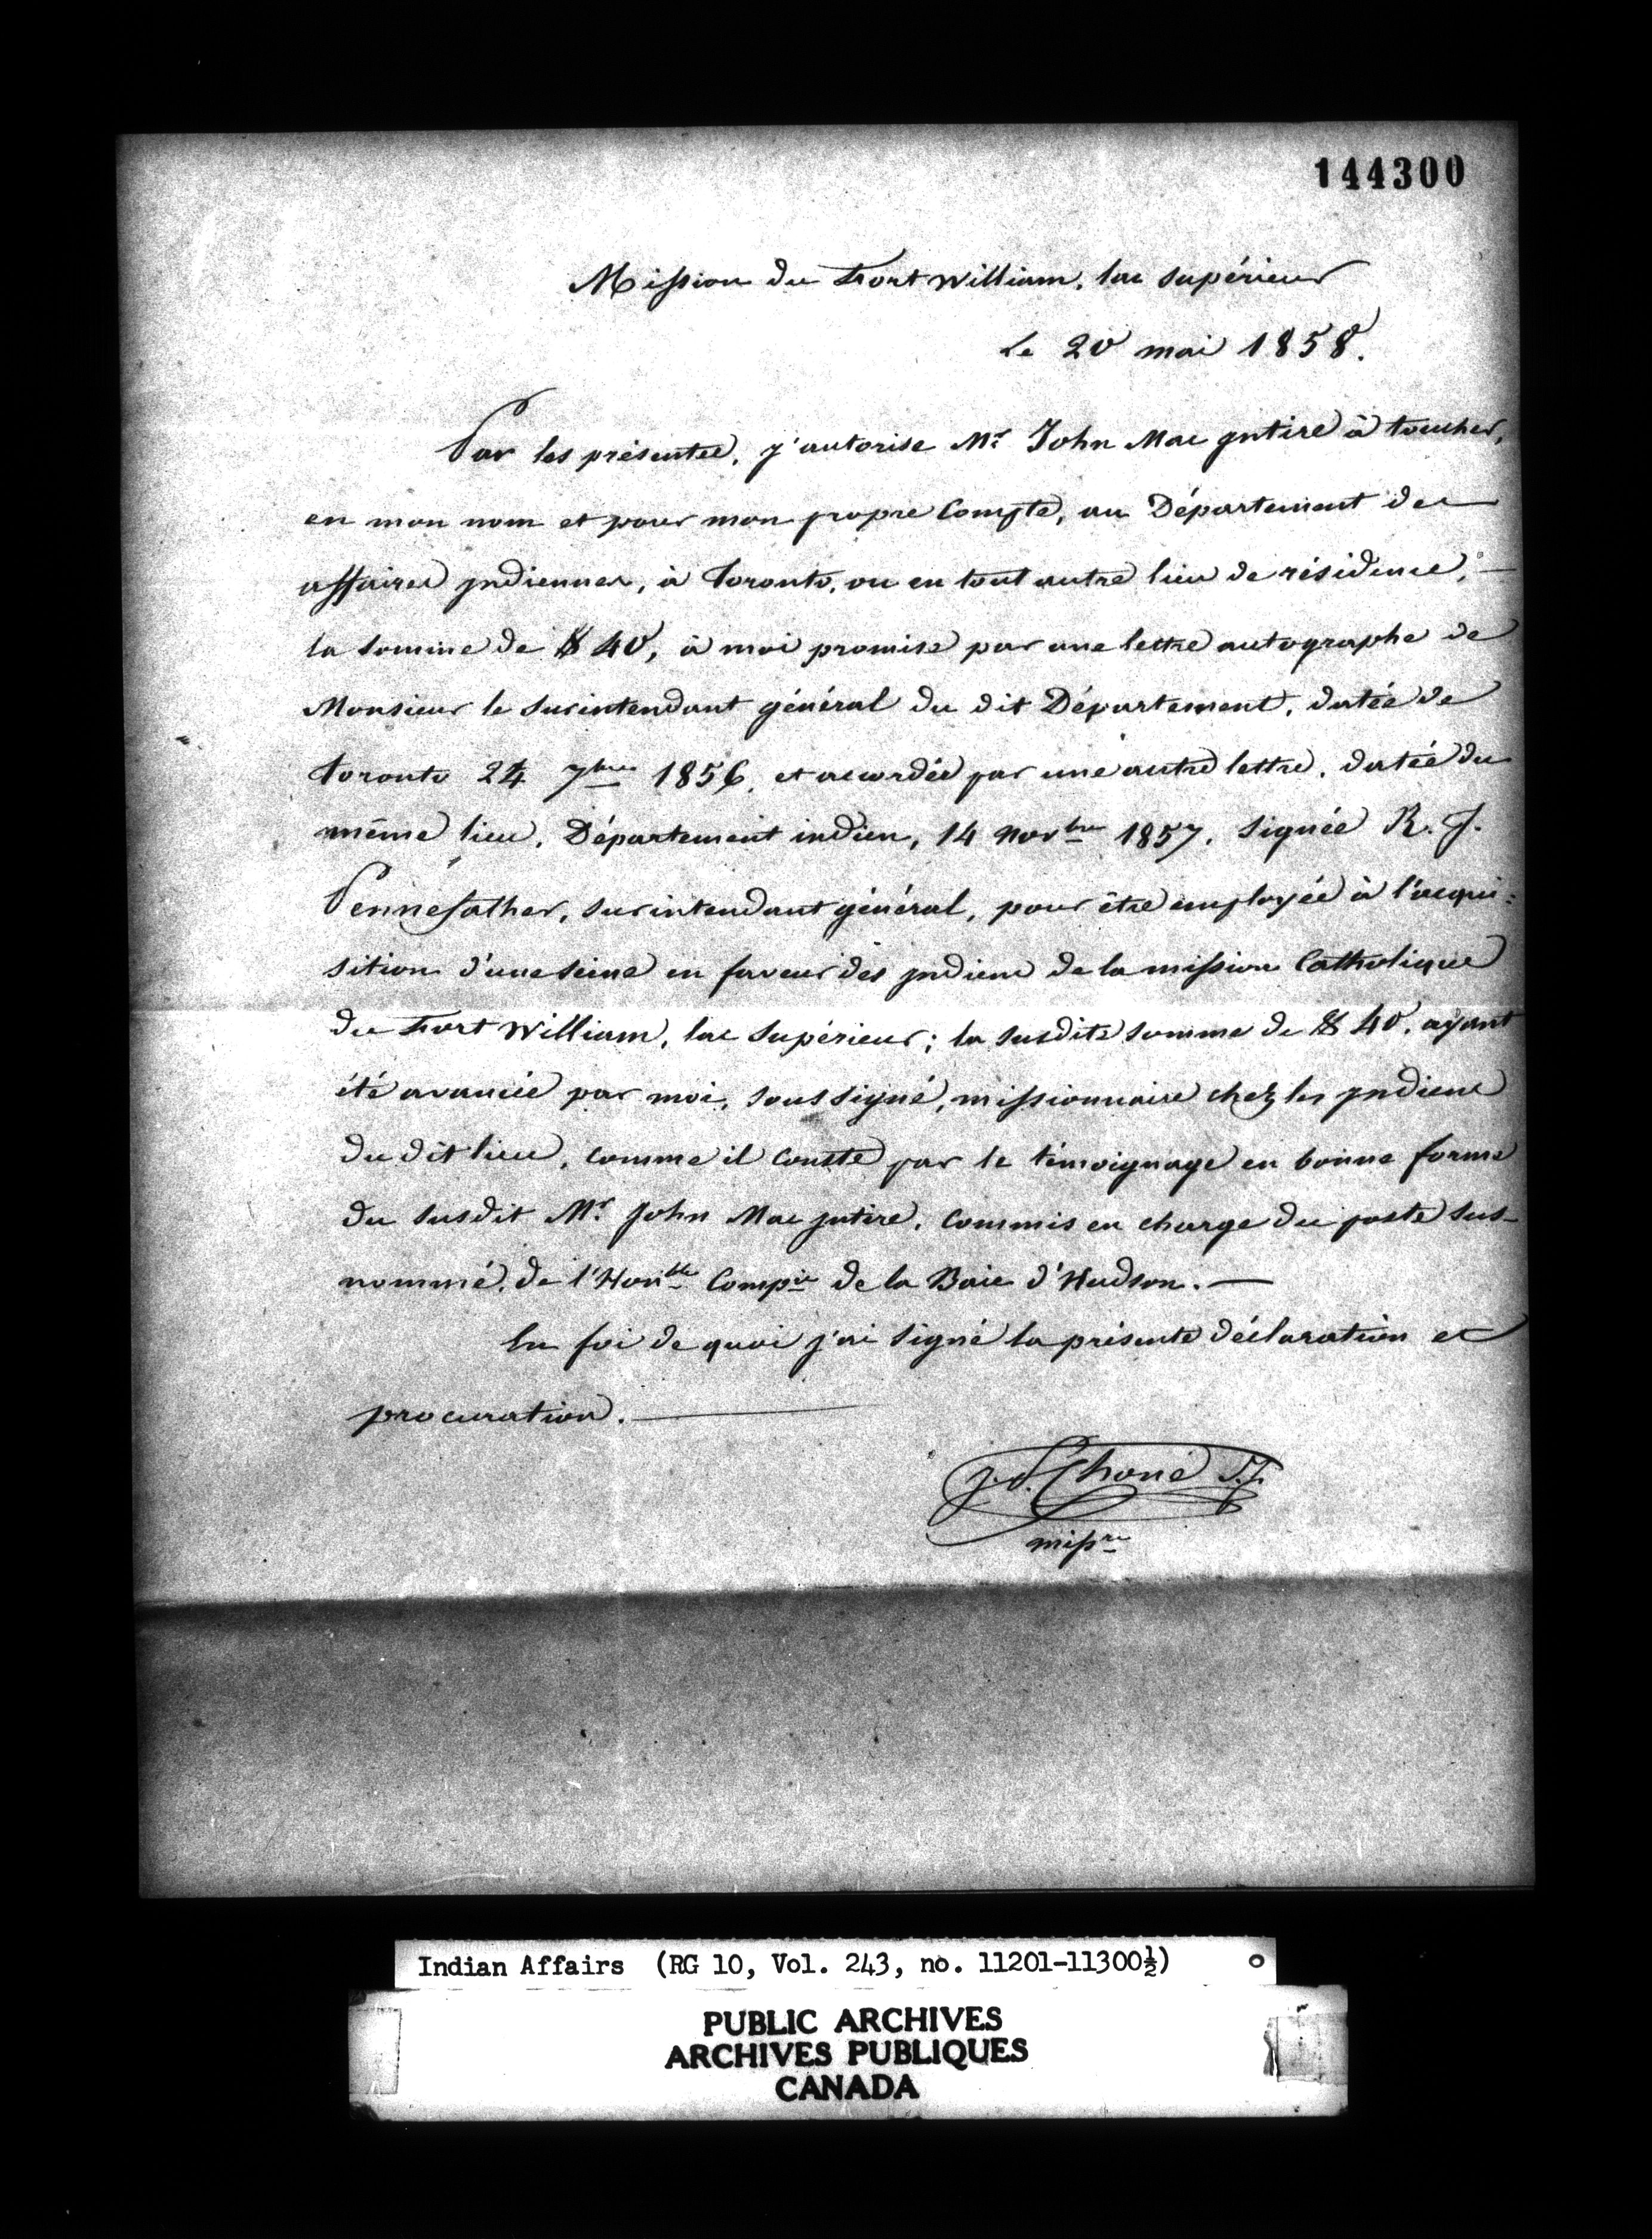 144300
Mission du Fort William, lac Supérieur
le 20 mai 1858.
Par les présentes, j'autorise Mr John Mac Intire à toucher,
en mon nom et pour mon propre Compte, au Département des
affaires Indiennes, à Toronto, ou en tout autre lieu de résidence, —
la somme de $ 40, à moi promise par une lettre autographe de
Monsieur le Surintendant général du dit Département, datée de
Toronto 24 7bre 1856, et accordée par une autre lettre, datée du
même lieu, Département indien, 14 Novbre 1857, signée R. J.
Pennefather, surintendant général, pour être employée à l'acqui=
sition d'une seine en faveur des Indiens de la mission Catholique
du Fort William, lac Supérieur; la susdite somme de $ 40, ayant
été avancée par moi, soussigné, missionnaire chez les Indiens
du dit lieu, comme il conste par le témoignage en bonne forme
du susdit Mr. John Mac Intire, Commis en charge du poste sus-
nommé, de l'Honble Compie de la Baie d'Hudson. —
En foi de quoi j'ai signé la présente déclaration et
procuration. —
J. P. Choné S.J.
missre
Indian Affairs (RG 10, Vol. 243, no. 11201-11300½)
PUBLIC ARCHIVES
ARCHIVES PUBLIQUES
CANADA